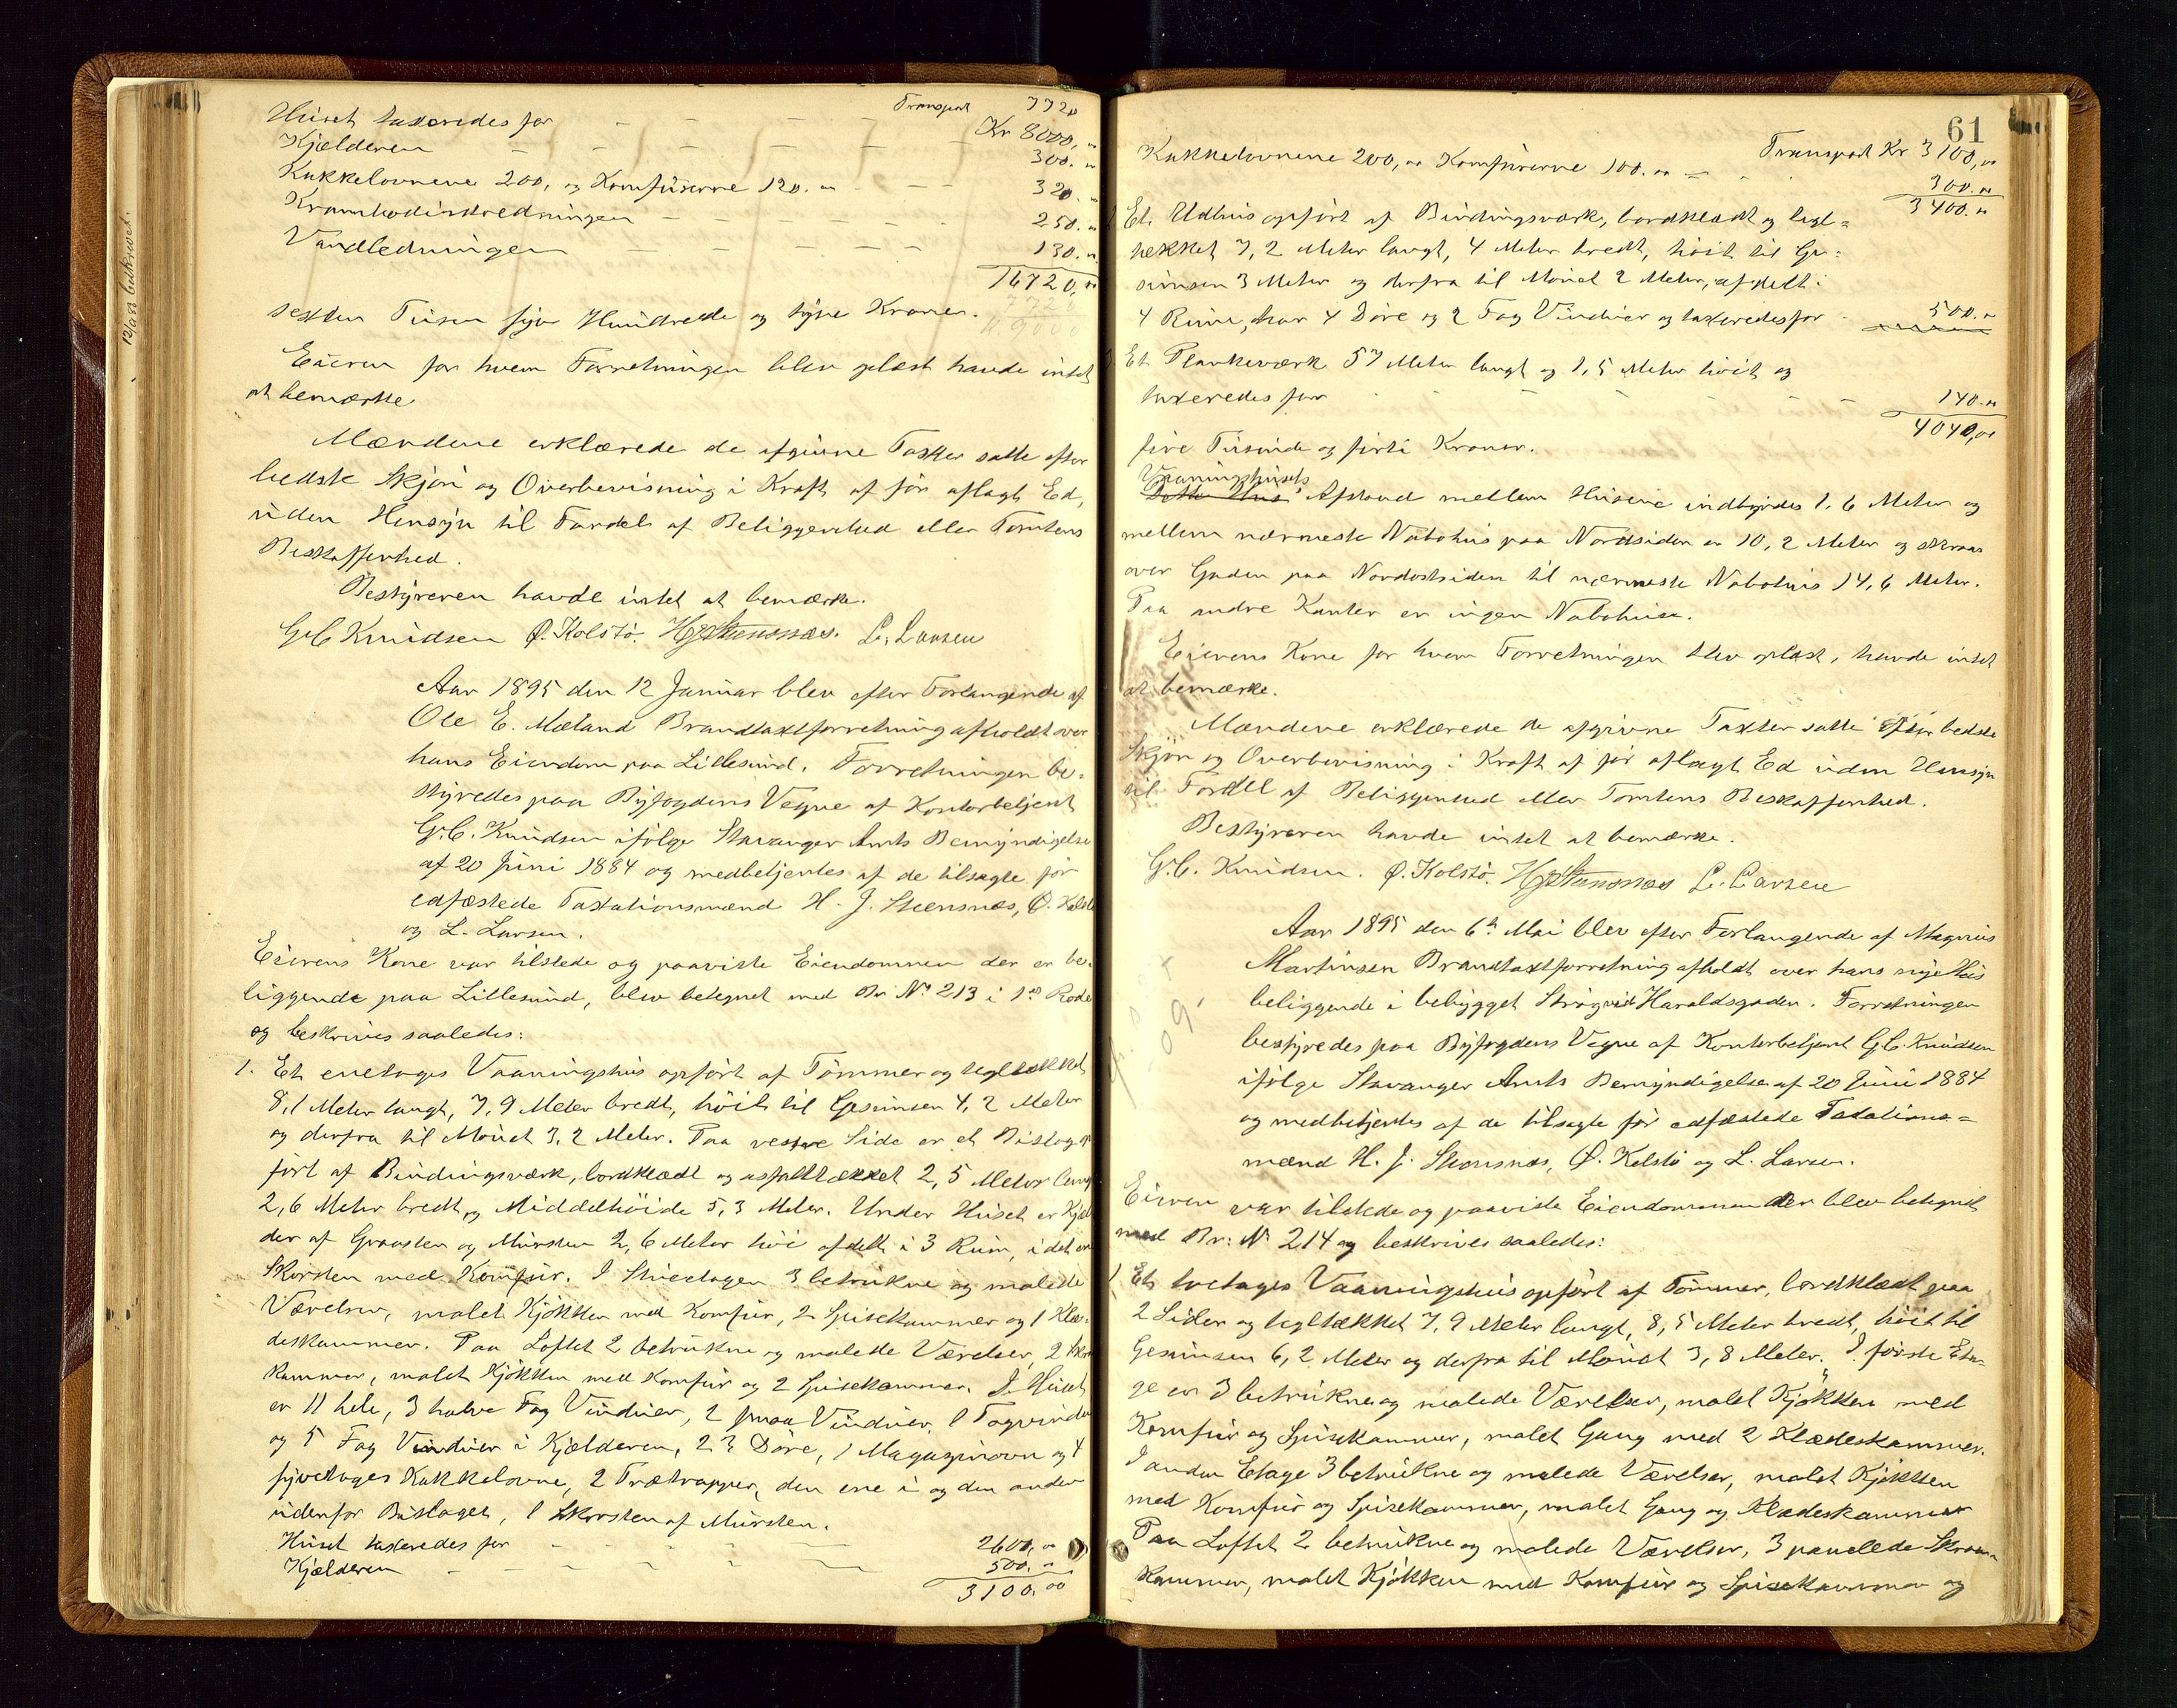 12/1 83 beskrevet.
Transport 7720
Huset taxeredes for — — — — — Kr 8000, "
Kjælderen — — — — — — 300. "
Kakkelovnene 200, og Komfurerne 120. " — — 320. "
Krambodindredningen — — — — 250. "
Vandledningen — — — — — 130. "
16720, "
sexten Tusen syv Hundrede og tyve Kroner.
Eieren for hvem Forretningen blev oplæst havde intet
at bemærke
Mændene erklærede de afgivne Taxter satte efter
bedste Skjøn og Overbevisning i Kraft af før aflagt Ed,
uden Hensyn til Fordel af Beliggenhed eller Tomtens
Beskaffenhed.
Bestyreren havde intet at bemærke.
G.C. Knudsen Ø. Kolstø. H.J. Stensnæs. L. Larsen
Aar 1895 den 12 Januar blev efter Forlangende af
Ole E. Mæland Brandtaxtforretning afholdt over
hans Eiendom paa Lillesund. Forretningen be-
styredes paa Byfogdens Vegne af Kontorbetjent
G.C. Knudsen ifølge Stavanger Amts Bemyndigelse
af 20 Juni 1884 og medbetjentes af de tilsagte før
edfæstede Taxationsmænd H. J. Stensnæs, Ø. Kolstø
og L. Larsen.
Eierens Kone var tilstede og paaviste Eiendommen der er be-
liggende paa Lillesund, blev betegnet med Br No 213 i 1ste Rode
og beskrives saaledes:
1. Et enetages Vaaningshus opført af Tømmer og tegltækket
8,1 Meter langt, 7,9 Meter bredt, høit til Gesimsen 4,2 Meter
og derfra til Mønet 3,2 Meter. Paa vestre Side er et Bislag op-
ført af Bindingsværk, bordklædt og asfalttækket 2,5 Meter langt
2,6 Meter bredt og Middelhøide 5,3 Meter. Under Huset er Kjæl-
der af Graasten og Mursten 2,6 Meter høi afdelt i 3 Rum, i det ene
Skorsten med Komfur. I Stueetagen 3 betrukne og malede
Værelser, malet Kjøkken med Komfur, 2 Spisekammer og 1 Klæ-
deskammer. Paa Loftet 2 betrukne og malede Værelser, 2 Skram-
kammer, malet Kjøkken med Komfur og 2 Spisekammer. I Huset
er 11 hele, 3 halve Fag Vinduer, 2 smaa Vinduer, 1 Tagvindu
og 5 Fag Vinduer i Kjælderen, 23 Døre, 1 Magazinovn og 4
fireetages Kakkelovne, 2 Trætrapper, den ene i og den anden
udenfor Bislaget, 1 Skorsten af Mursten.
Huset taxeredes for — — — — 2600, "
Kjælderen — — — — — 500. "
3100.00
61
Transport Kr 3100, "
Kakkelovnene 200, " Komfurerne 100. " — 300. "
3400. "
Et Udhus opført af Bindingsværk, bordklædt og tegl-
tækket 7,2 Meter langt, 4 Meter bredt, høit til Ge-
simsen 3 Meter og derfra til Mønet 2 Meter, afdelt i
4 Rum, har 4 Døre og 2 Fag Vinduer og taxeredes for — 500. "
Et Plankeværk 57 Meter langt og 1,5 Meter høit og
taxeredes for — — — — 140. "
4040,00
fire Tusinde og firti Kroner.
Vaaningshusets
Dette Hus Afstand mellem Husene indbyrdes 1,6 Meter og
mellem nærmeste Nabohus paa Nordsiden er 10,2 Meter og skraas
over Gaden paa Nordostsiden til nærmeste Nabohus 14,6 Meter.
Paa andre Kanter er ingen Nabohuse.
Eierens Kone for hvem Forretningen blev oplæst, havde intet
at bemærke.
Mændene erklærede de afgivne Taxter satte efter bedste
Skjøn og Overbevisning i Kraft af før aflagt Ed uden Hensyn
til Fordel af Beliggenhed eller Tomtens Beskaffenhed.
Bestyreren havde intet at bemærke.
G.C. Knudsen. Ø. Kolstø. H.J. Stensnæs L. Larsen
Aar 1895 den 6te Mai blev efter Forlangende af Magnus
Martinsen Brandtaxtforretning afholdt over hans nye Hus
beliggende i bebygget Strøg ved Haraldsgaden. Forretningen
bestyredes paa Byfogdens Vegne af Kontorbetjent G.C. Knudsen
ifølge Stavanger Amts Bemyndigelse af 20 Juni 1884
og medbetjentes af de tilsagte før edfæstede Taxations-
mænd H. J. Stensnæs, Ø. Kolstø og L. Larsen.
Eieren var tilstede og paaviste Eiendommen der blev betegnet
med Br: No 214 og beskrives saaledes:
1 Et toetages Vaaningshus opført af Tømmer, bordklædt paa
2 Sider og tegltækket 7,9 Meter langt, 8,5 Meter bredt, høit til
Gesimsen 6,2 Meter og derfra til Mønet 3,8 Meter. I første Eta-
ge er 3 betrukne og malede Værelser, malet Kjøkken med
Komfur og Spisekammer, malet Gang med 2 Klædeskammer.
I anden Etage 3 betrukne og malede Værelser, malet Kjøkken
med Komfur og Spisekammer, malet Gang og Klædeskammer
Paa Loftet 2 betrukne og malede Værelser, 3 panelede Skram-
kammer, malet Kjøkken med Komfur og Spisekammer og